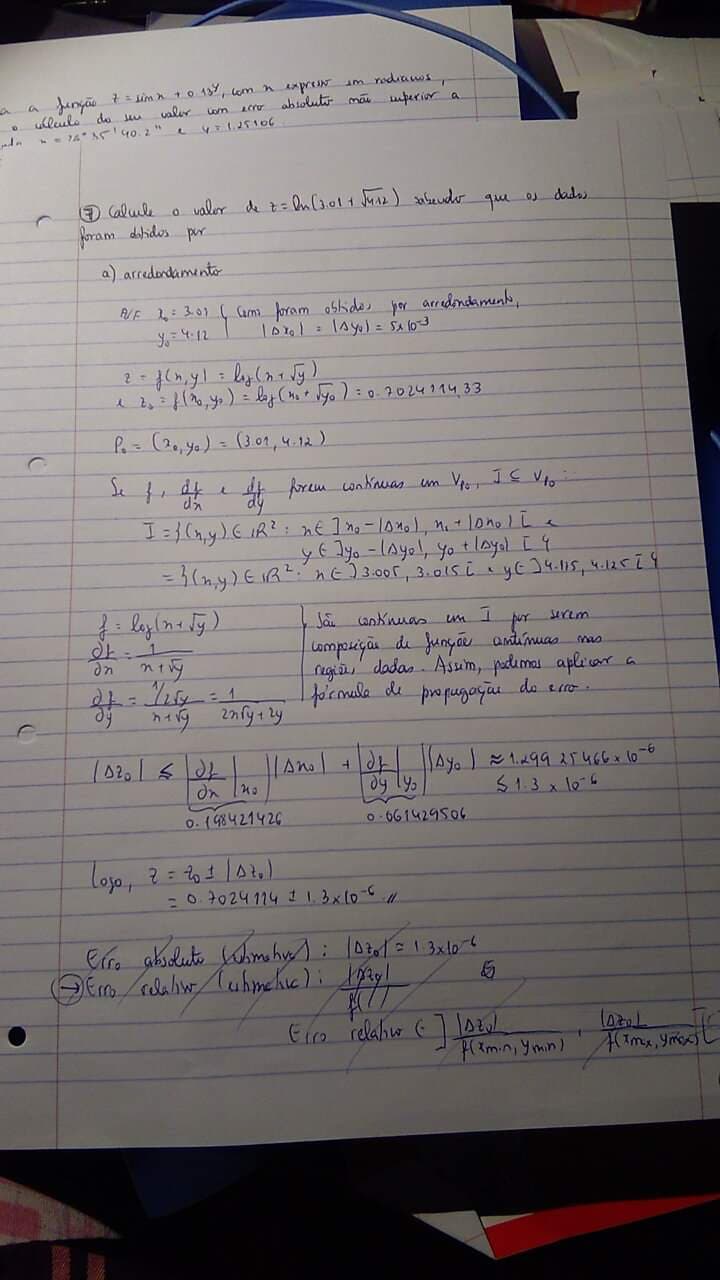 a a função z = sin x + 0.13^y, com x expresso em radianos,
o cálculo do seu valor com erro absoluto não superior a
e y = 1.25106
⑦ Calcule o valor de z = ln(3.01 + √4.12) sabendo que os dados
foram obtidos por
a) arredondamento
x₀ = 3.01 { Como foram obtidos por arredondamento,
y₀ = 4.12 | |Δx₀| = |Δy₀| = 5x10⁻³
z = f(x,y) = log(x + √y)
e z₀ = f(x₀,y₀) = log(x₀ + √y₀) = 0.702411433
P₀ = (x₀, y₀) = (3.01, 4.12)
Se f, df/dx e df/dy forem contínuas em Vp₀, I ⊆ Vp₀ :
I = {(x,y) ∈ IR² : x ∈ ]x₀ - |Δx₀|, x₀ + |Δx₀|[ ∧
y ∈ ]y₀ - |Δy₀|, y₀ + |Δy₀|[ }
= {(x,y) ∈ IR² : x ∈ ]3.005, 3.015[ ∧ y ∈ ]4.115, 4.125[ }
f = log(x + √y)
∂f/∂x = 1/(x + √y)
∂f/∂y = (1/2√y)/(x + √y) = 1/(2x√y + 2y)
São contínuas em I por serem
composição de funções contínuas nas
regiões dadas. Assim, podemos aplicar a
fórmula de propagação do erro.
|Δz₀| ≤ |∂f/∂x|x₀| |Δx₀| + |∂f/∂y|y₀| |Δy₀| ≈ 1.29925466 x 10⁻⁶
≤ 1.3 x 10⁻⁶
0.198421426 0.061429506
Logo, z = z₀ ± |Δz₀|
= 0.7024114 ± 1.3 x 10⁻⁶ //
Erro absoluto : |Δz₀| = 1.3x10⁻⁶
→ Erro relativo : |Δz₀| / f( )
Erro relativo ∈ ] |Δz₀| / f(xmin, ymin) , |Δz₀| / f(xmax, ymax) [